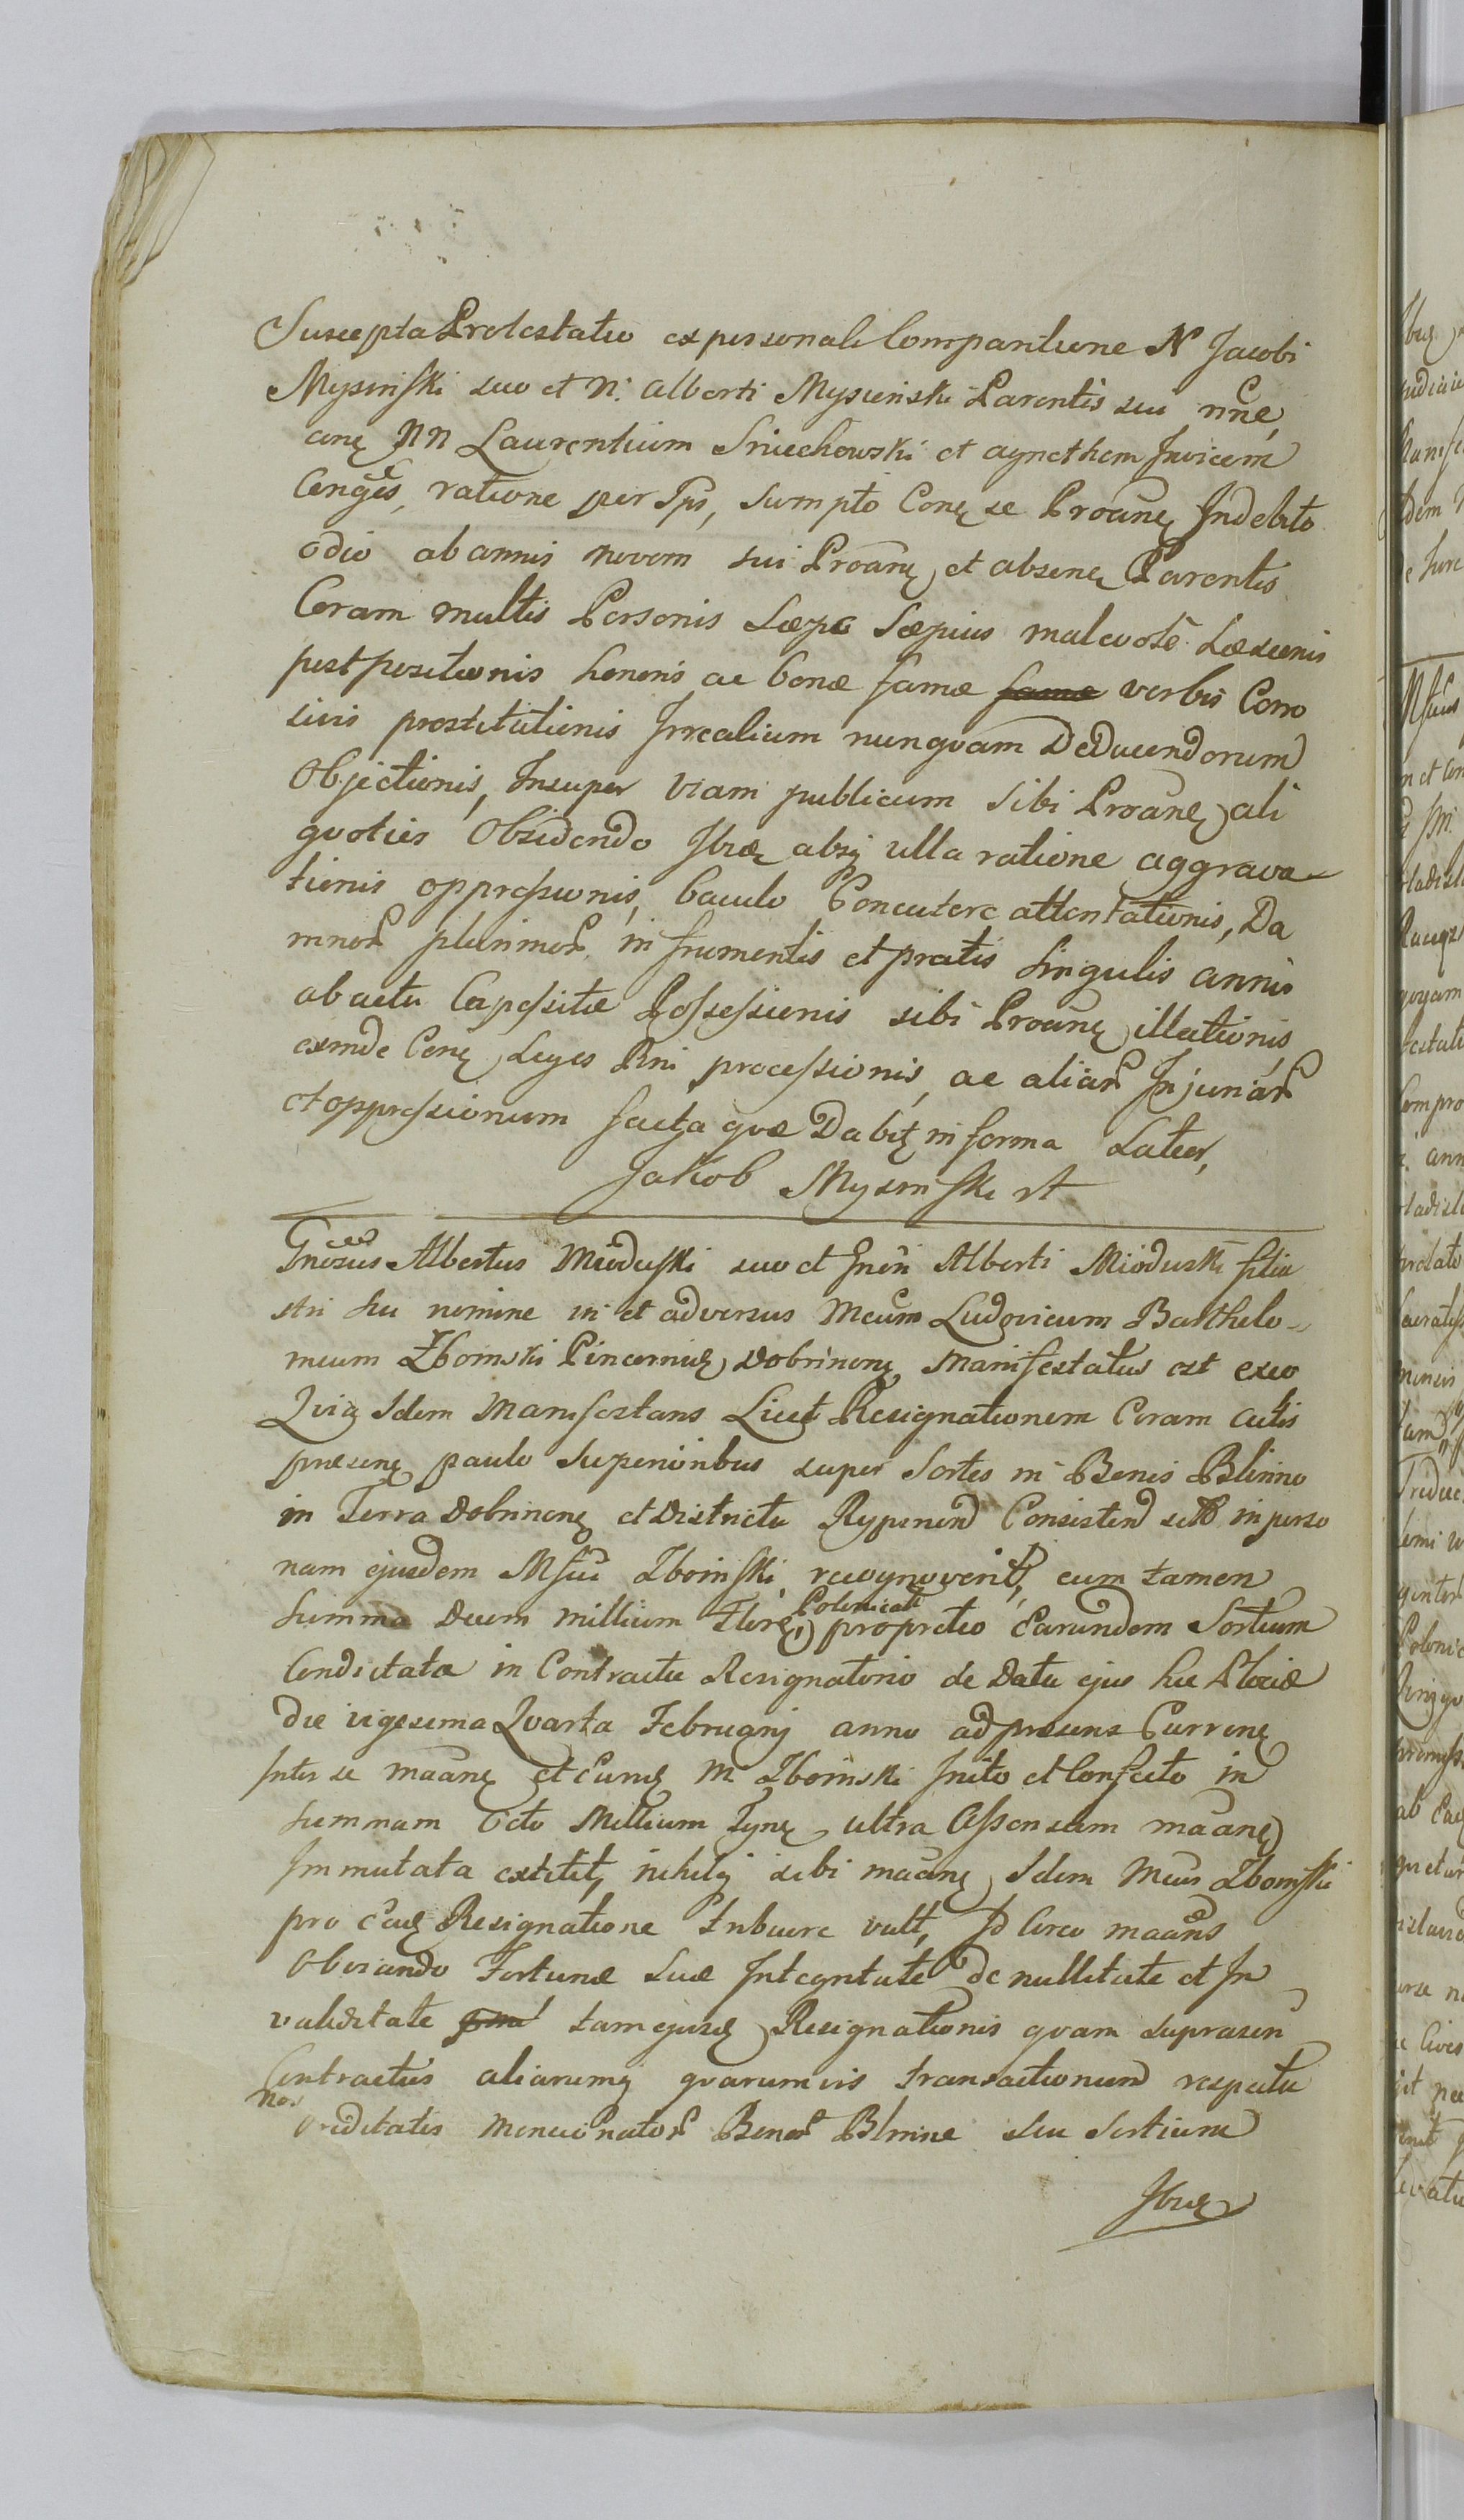 Suscepta Protestatio ex personali Comparitione N Jacobi
Mysinski suo et N: Alberti Mysienski Parentis sui nne,
cone NN Laurentium Sniechowski et Agnethem Invicem
Conges, ratione per Ips, sumpto Cone se Proane Indebito
odio ab annis novem sui Proane et absene Parentis
Coram multis Personis Sæpe Sæpius malevole Læsionis
postpositionis honoris ac bonæ famæ verbis Corro
sivis prostitutionis Irrealium nunquam Deducendorum
Objectionis, Insuper viam publicam sibi Proane ali
quoties Obsidendo Ibiq absq ulla ratione aggrava-
tionis oppressionis, baculo Concutere attentationis, Da
mnor plurimor in frumentis et pratis singulis annis
ab actu Capessitæ Possessionis sibi Proane illationis
exinde Cone Leges Rni processionis, ac aliar Injuriar
et oppressionum facta quæ Dabit in forma Latior,
Jakob Mysinski rt
Gnosus Albertus Mioduski suo et Gnen Alberti Mioduski filia
stri sui nomine in et adversus Mcum Ludovicum Barthelo-
meum Zboinski Pincernid Dobrinene Manifestatus est ex eo
Quia Idem Manifestans Licet Resignationem Coram Actis
præsene paulo Superioribus super Sortes in Bonis Blinno
in Terra Dobrinene et Districtu Rypinen Consisten in perso
nam ejusdem Mfici Zboinski recognoverit, cum tamen
Summa Decem millium Flore, Polonicali pro pretio Earundem Sortium
Condictata in Contractu Resignatorio de Data ejus hic Plociæ
die vigesima Quarta Februarij anno ad præsens Currene
Inter se maane et Eund M Zboinski Inito et Confecto in
Summam Octo Millium Tyne ultra Assensum maane
Immutata extitit, nihilq sibi maane Idem Mcus Zboinski
pro ead Resignatione tribuere vult, Id Circo maans
Obviando Fortunæ suæ Integritate de nullitate et In
validitate tam ejusd Resignationis quam suprascri
Contractus aliarumq quarumvis transactionum respectu
nos
reditatis mencionator Bonor Blinne seu Sortium
Ibid